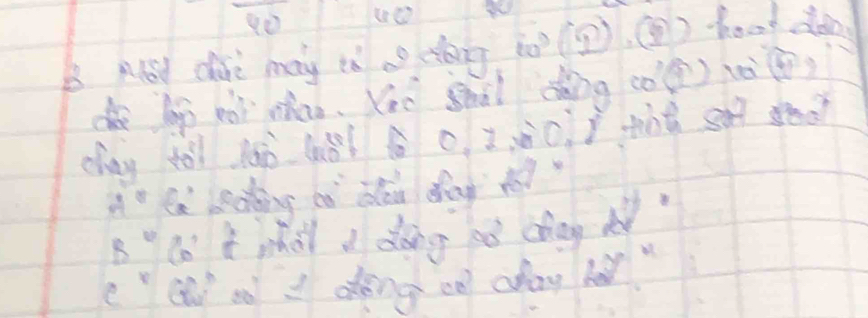 40 40 40
3 Một chiếc máy có 2 động cơ (I), (II) hoạt động
độc lập với nhau. Xác suất động cơ (I) và (II)
chạy tốt lần lượt là 0,7 và 0, tính xác suất
A " Cả 2 động cơ đều chạy tốt "
B " Có ít nhất 1 động cơ chạy tốt "
C " Chỉ có 1 động cơ chạy tốt "